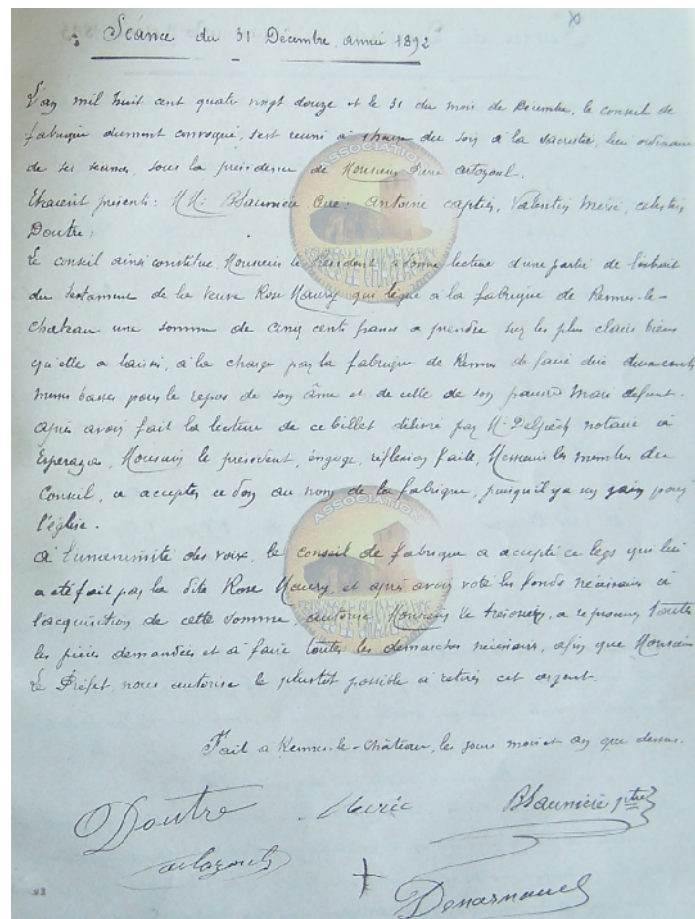 Séance du 31 Décembre, année 1892
L'an mil huit cent quatre vingt douze et le 31 du mois de Décembre, le conseil de
fabrique dument convoqué, s'est reuni à heure du soir à la sacristie, lieu ordinaire
de ses séances, sous la présidence de Monsieur
Etaient présents: MM: BSaunière Curé: Antoine Captier, Valentin Meric, celestin
Doutre,
Le conseil ainsi constitué, Monsieur le Président a donné lecture d'une partie de l'extrait
du testament de la veuve Rose Maury qui lègue à la fabrique de Rennes-le-
chateau une somme de cinq cents francs a prendre sur les plus clairs biens
qu'elle a laissés, à la charge par la fabrique de Rennes de faire dire
messes basses pour le repos de son âme et de celle de son pauvre Mari défunt.
après avoir fait la lecture de ce billet délivré par M. Delpech notaire à
Esperaza, Monsieur le président, engage, réflexion faite, Messieurs les membres du
Conseil, a accepter ce don au nom de la fabrique, puisqu'il y a un gain pour
l'église.
à l'unanimité des voix, le conseil de fabrique a accepté ce legs qui lui
a été fait par la dite Rose Maury, et après avoir voté les fonds nécessaires à
l'acquisition de cette somme, autorise Monsieur le trésorier, a toutes
les pièces demandées et à faire toutes les démarches nécessaires, afin que Monsieur
le Préfet, nous autorise le plustot possible à retirer cet argent.
Fait a Rennes-le-Château, les jours mois et an que dessus.
Doutre Meric BSaunière ptre
Denarnaud
ASSOCIATION
ASSOCIATION